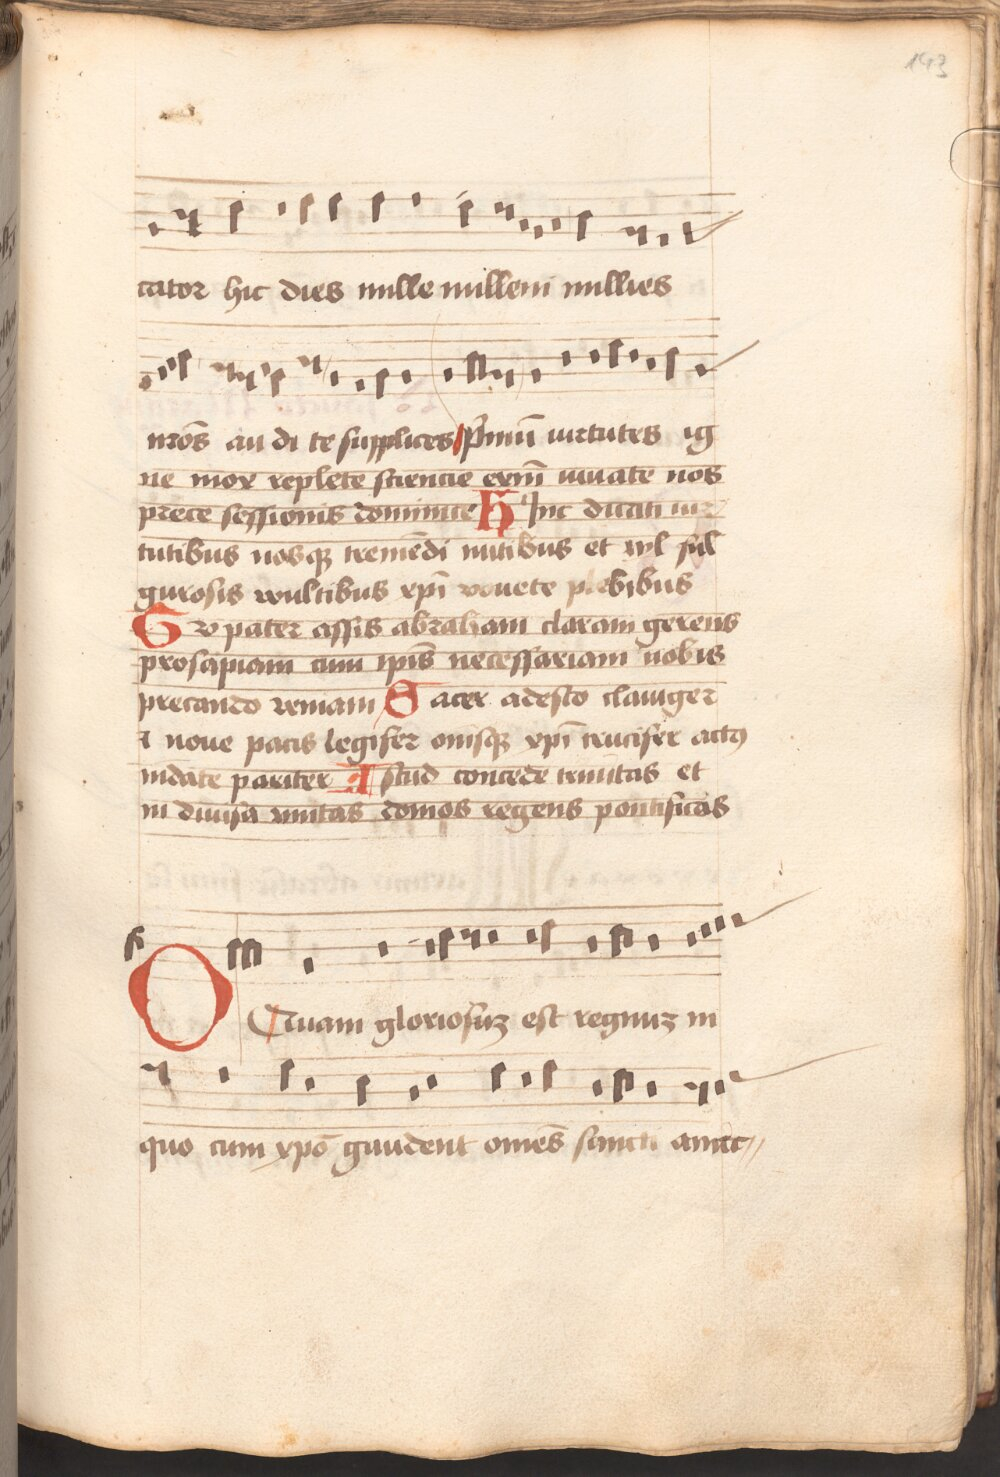 143
cator hic dies mille millem millies
nr̄os au di te supplices Pͥmm̄ uirtutes ig
ne mox replete sciencie exm̄ uiuate nos
prece sessionis dominice Hinc ducati uir
tutibus uosqꝫ tremēdi nutibus et xpl ful
gurosis wultibus xp̄i vouete plebibus
Gro pater assis abraham claram gerens
prosapiam cum ip̄is necessariam nobis
precando veniam Sacer adesto clauiger
⁊ noue pacis legifer om̄sqꝫ xp̄i crucifer
nidate pariter Istud concede trinitas et
in diuisa unitas domos regens pontificās
O Quam gloriosuꝫ est regnuꝫ in
quo cum xpō gaudent omēs sancti amic